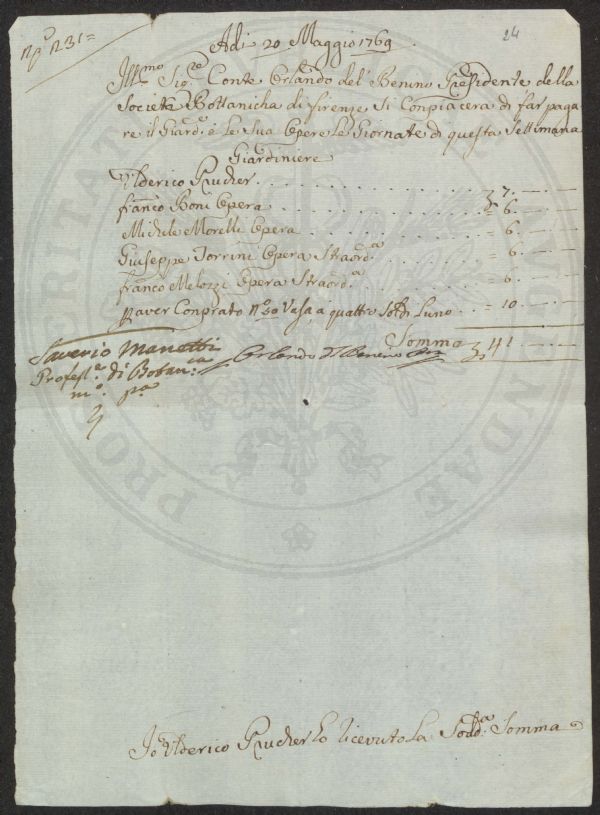 N.º 1231=
24
Adi 20 Maggio 1769
Ill.mo Sig.e Conte Orlando del Benino Presidente della
Società Bottanicha di firenze Si Conpiacera di far paga
re il Giard.e è le Sua Opere Le Giornate di questa Settimana
Giardiniere
Ulderico Prucher . . . . . . . . . . 7. —
franco Boni Opera . . . . . . . . . . 6. —
Michele Morelli Opera . . . . . . . . = 6. —
Giuseppe Torrini Opera Straord.a . . . = 6. —
franco Melozzi Opera Straord.a . . . . = 6. —
p aver Conprato Nº 50 Vasa, a quattro Soldi Luno . . = 10. —
Somma 41 —
Saverio Manetti
Profess.e di Botan.ca
m.º p.a
Orlando del Benino
Io Ulderico Prucher Lo ricevuto La Sodd.a Somma
PRO PATRIAE MAGNITUDINE